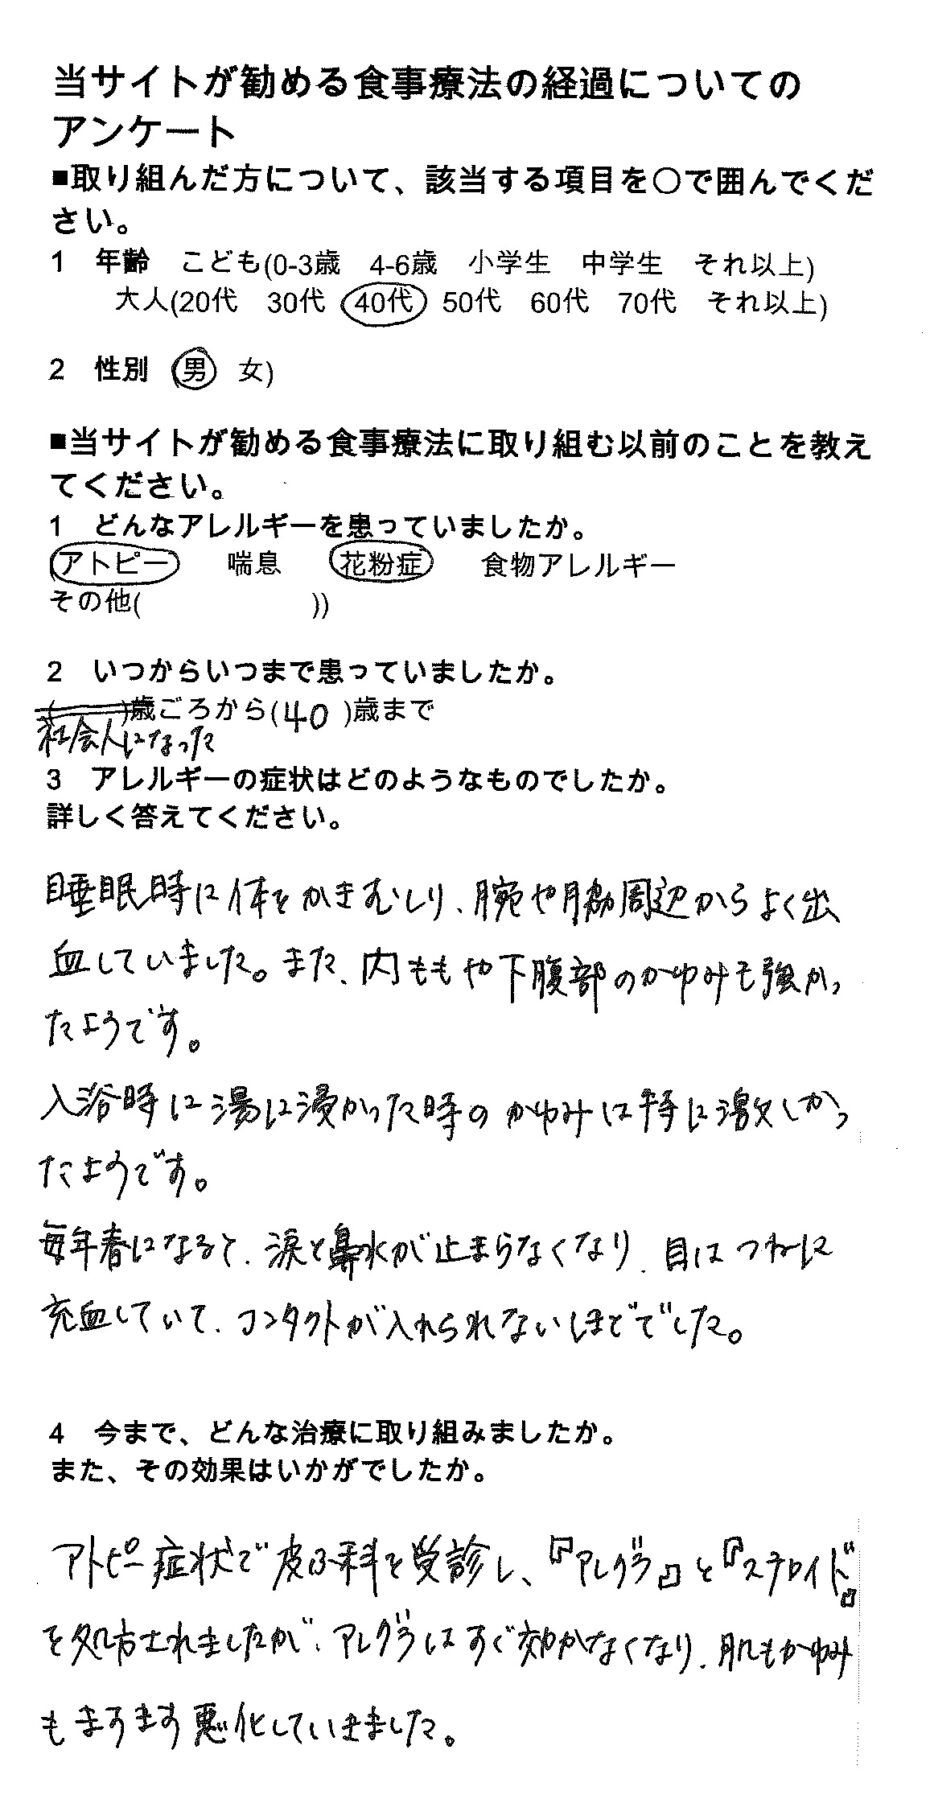 当サイトが勧める食事療法の経過についての
アンケート
■取り組んだ方について、該当する項目を○で囲んでくだ
さい。
1　年齢　こども(0-3歳　4-6歳　小学生　中学生　それ以上)
大人(20代　30代　40代　50代　60代　70代　それ以上)
2　性別　(男　女)
■当サイトが勧める食事療法に取り組む以前のことを教え
てください。
1　どんなアレルギーを患っていましたか。
アトピー　喘息　花粉症　食物アレルギー
その他(　　　　　　))
2　いつからいつまで患っていましたか。
(　　　)歳ごろから(40)歳まで
社会人になった
3　アレルギーの症状はどのようなものでしたか。
詳しく答えてください。
睡眠時に体をかきむしり、腕や脇周辺からよく出
血していました。また、内ももや下腹部のかゆみも強かっ
たようです。
入浴時に湯に浸かった時のかゆみは特に激しかっ
たようです。
毎年春になると、涙と鼻水が止まらなくなり、目はつねに
充血していて、コンタクトが入れられないほどでした。
4　今まで、どんな治療に取り組みましたか。
また、その効果はいかがでしたか。
アトピー症状で皮ふ科を受診し、『アレグラ』と『ステロイド』
を処方されましたが、アレグラはすぐ効かなくなり、肌もかゆみ
もますます悪化していきました。